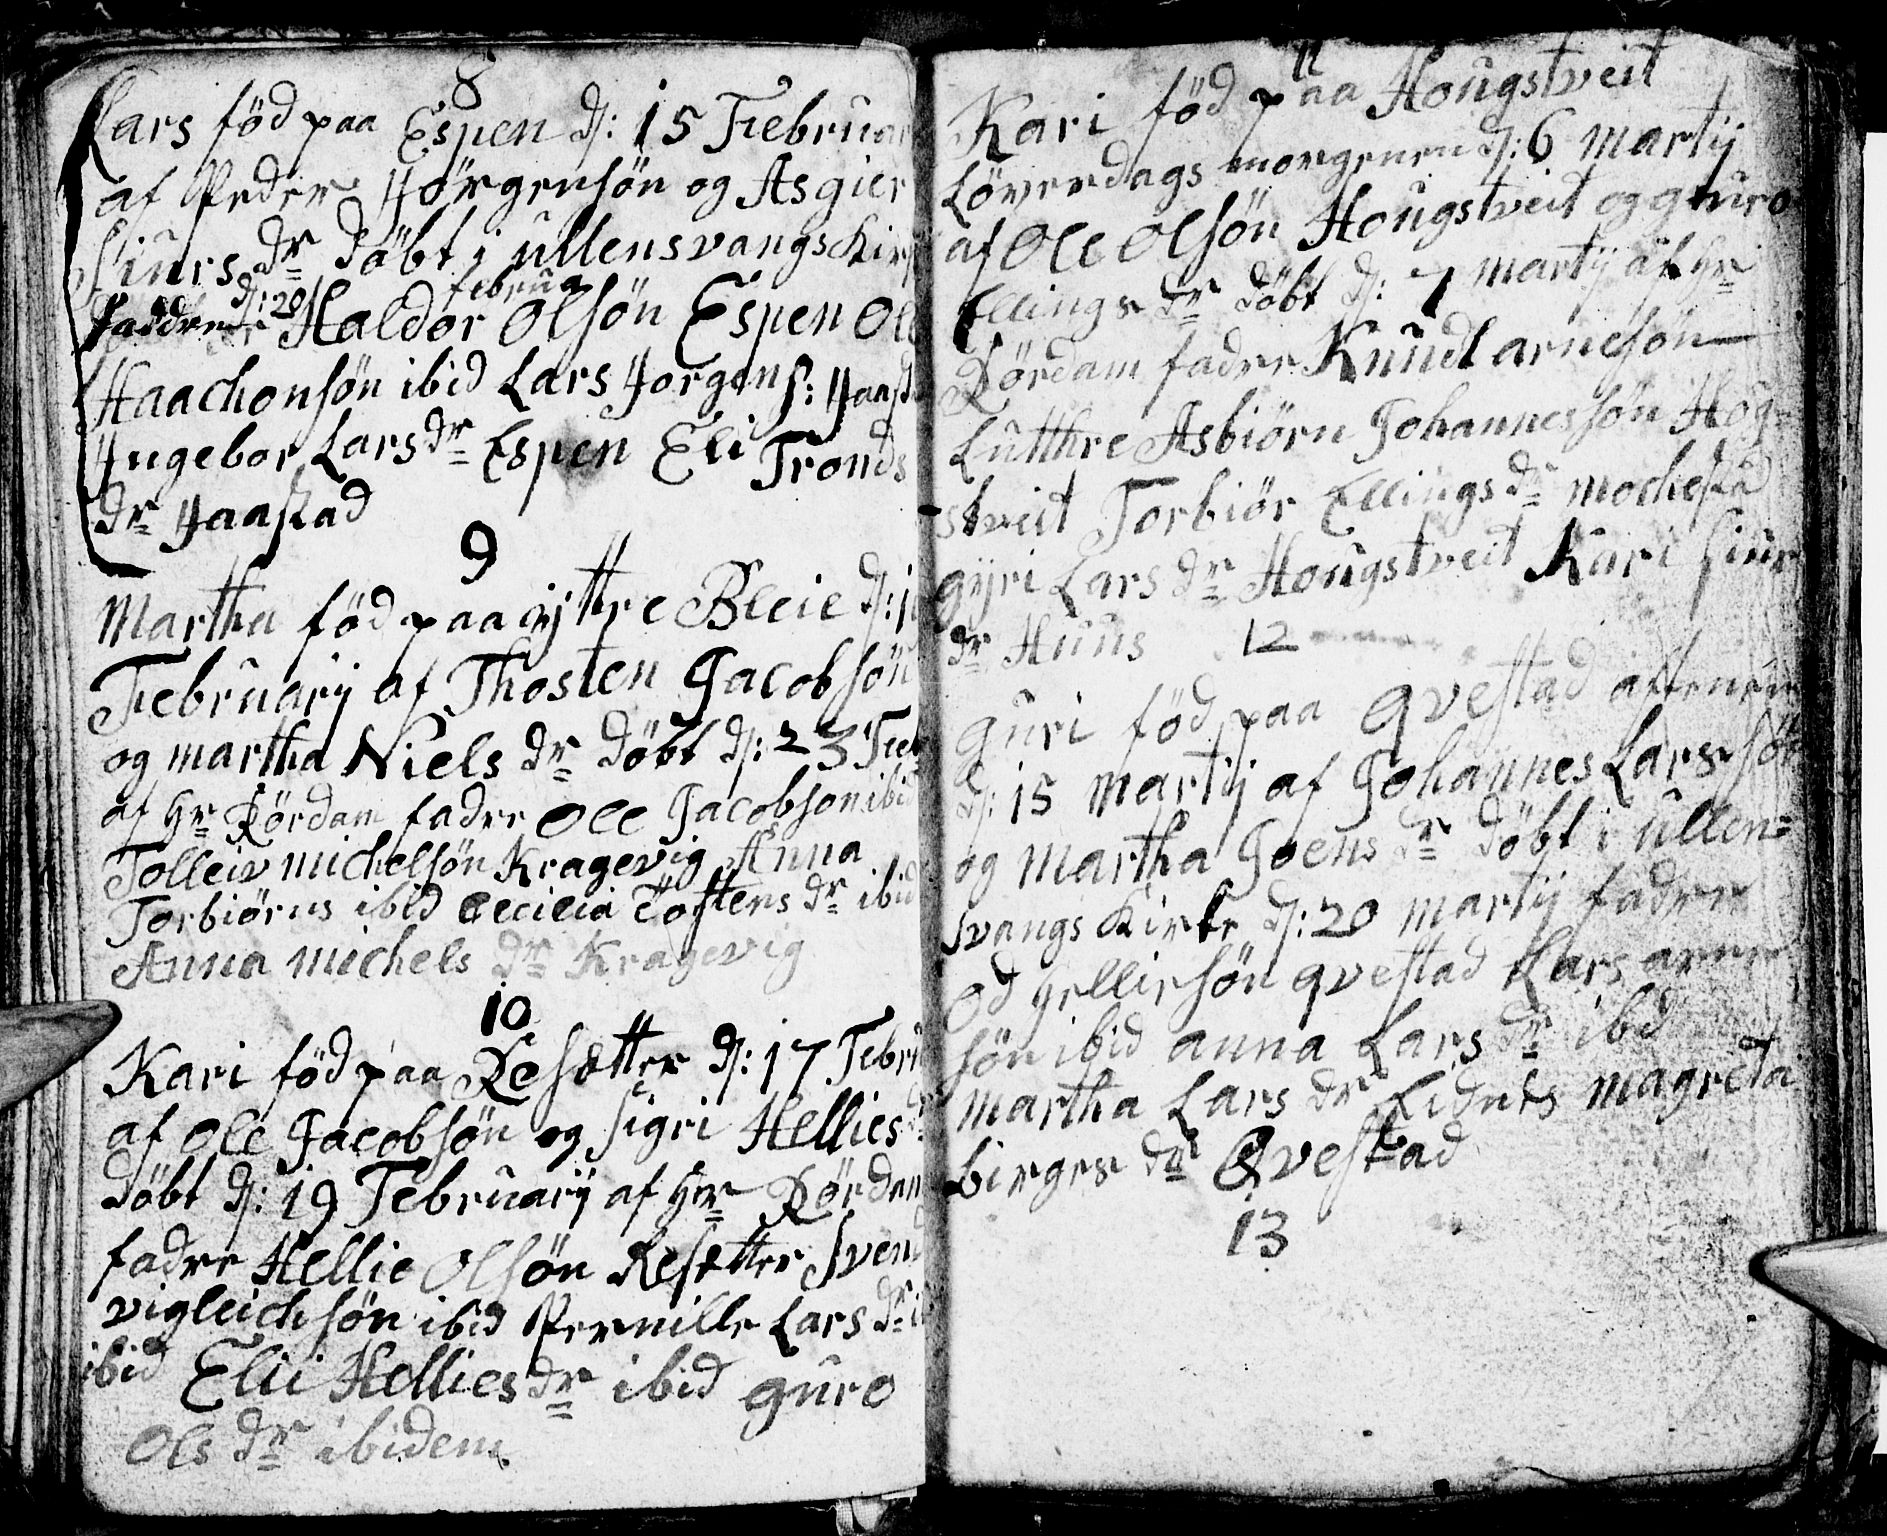 8
Lars föd paa Espen d: 15 Februar
af Peder Hörgensön og Asgier
Siurs dr döbt i ullensvangs Kir
d: 20 februa
faddre Haldor Olsön Espen Ole
Haachonsön ibid Lars Jorgens: Haast
Hngebor Lars dr Espen Eli Tronds
dr Haastad
9
Martha föd paa ÿttre Bleie d: 1
Februarÿ af Thosten Jacobsön
og martha Niels dr döbt d: 23 Feb
af Hr Rördam fadre Ole Jacobson ibid
Tolleiv michelsön Kragevig Anna
Torbiörns ibid Cecilia Tostens dr ibid
Anna michels dr Kragevig
10
Kari föd paa Resetter d: 17 Febru
af Ole Jacobsön og Sigri Hellies dr
döbt d: 19 Februarÿ af Hr Rördam
fadre Hellie Olsön Resetter Svend
vigleichsön ibid Pernille Lars dr i
ibid Elii Hellies dr ibid guro
Ols dr ibidem
11
Kari föd paa Hougstveit
Löverdags morgenen d: 6 martÿ
af Ole Olsön Hougstveit og guro
Ellings dr döbt d: 7 martÿ af Hr
Rördam fadre Knudt arnesön
Lutthre Asbiörn Johannessön Hog-
stveit Torbiör Ellings dr mochesta
gÿri Lars dr Hougstveit Kari Siur
dr Huus
12
guri föd paa qvestad aftenen
d: 15 martÿ af Johannes Lars sön
og martha Joens dr döbt i ullen=
svangs Kirke d: 20 martÿ fadre
Od Helliesön qvestad Lars arne
sön ibid anna Lars dr ibid
martha Lars dr Lidnes magreta
birges dr Qvestad
13